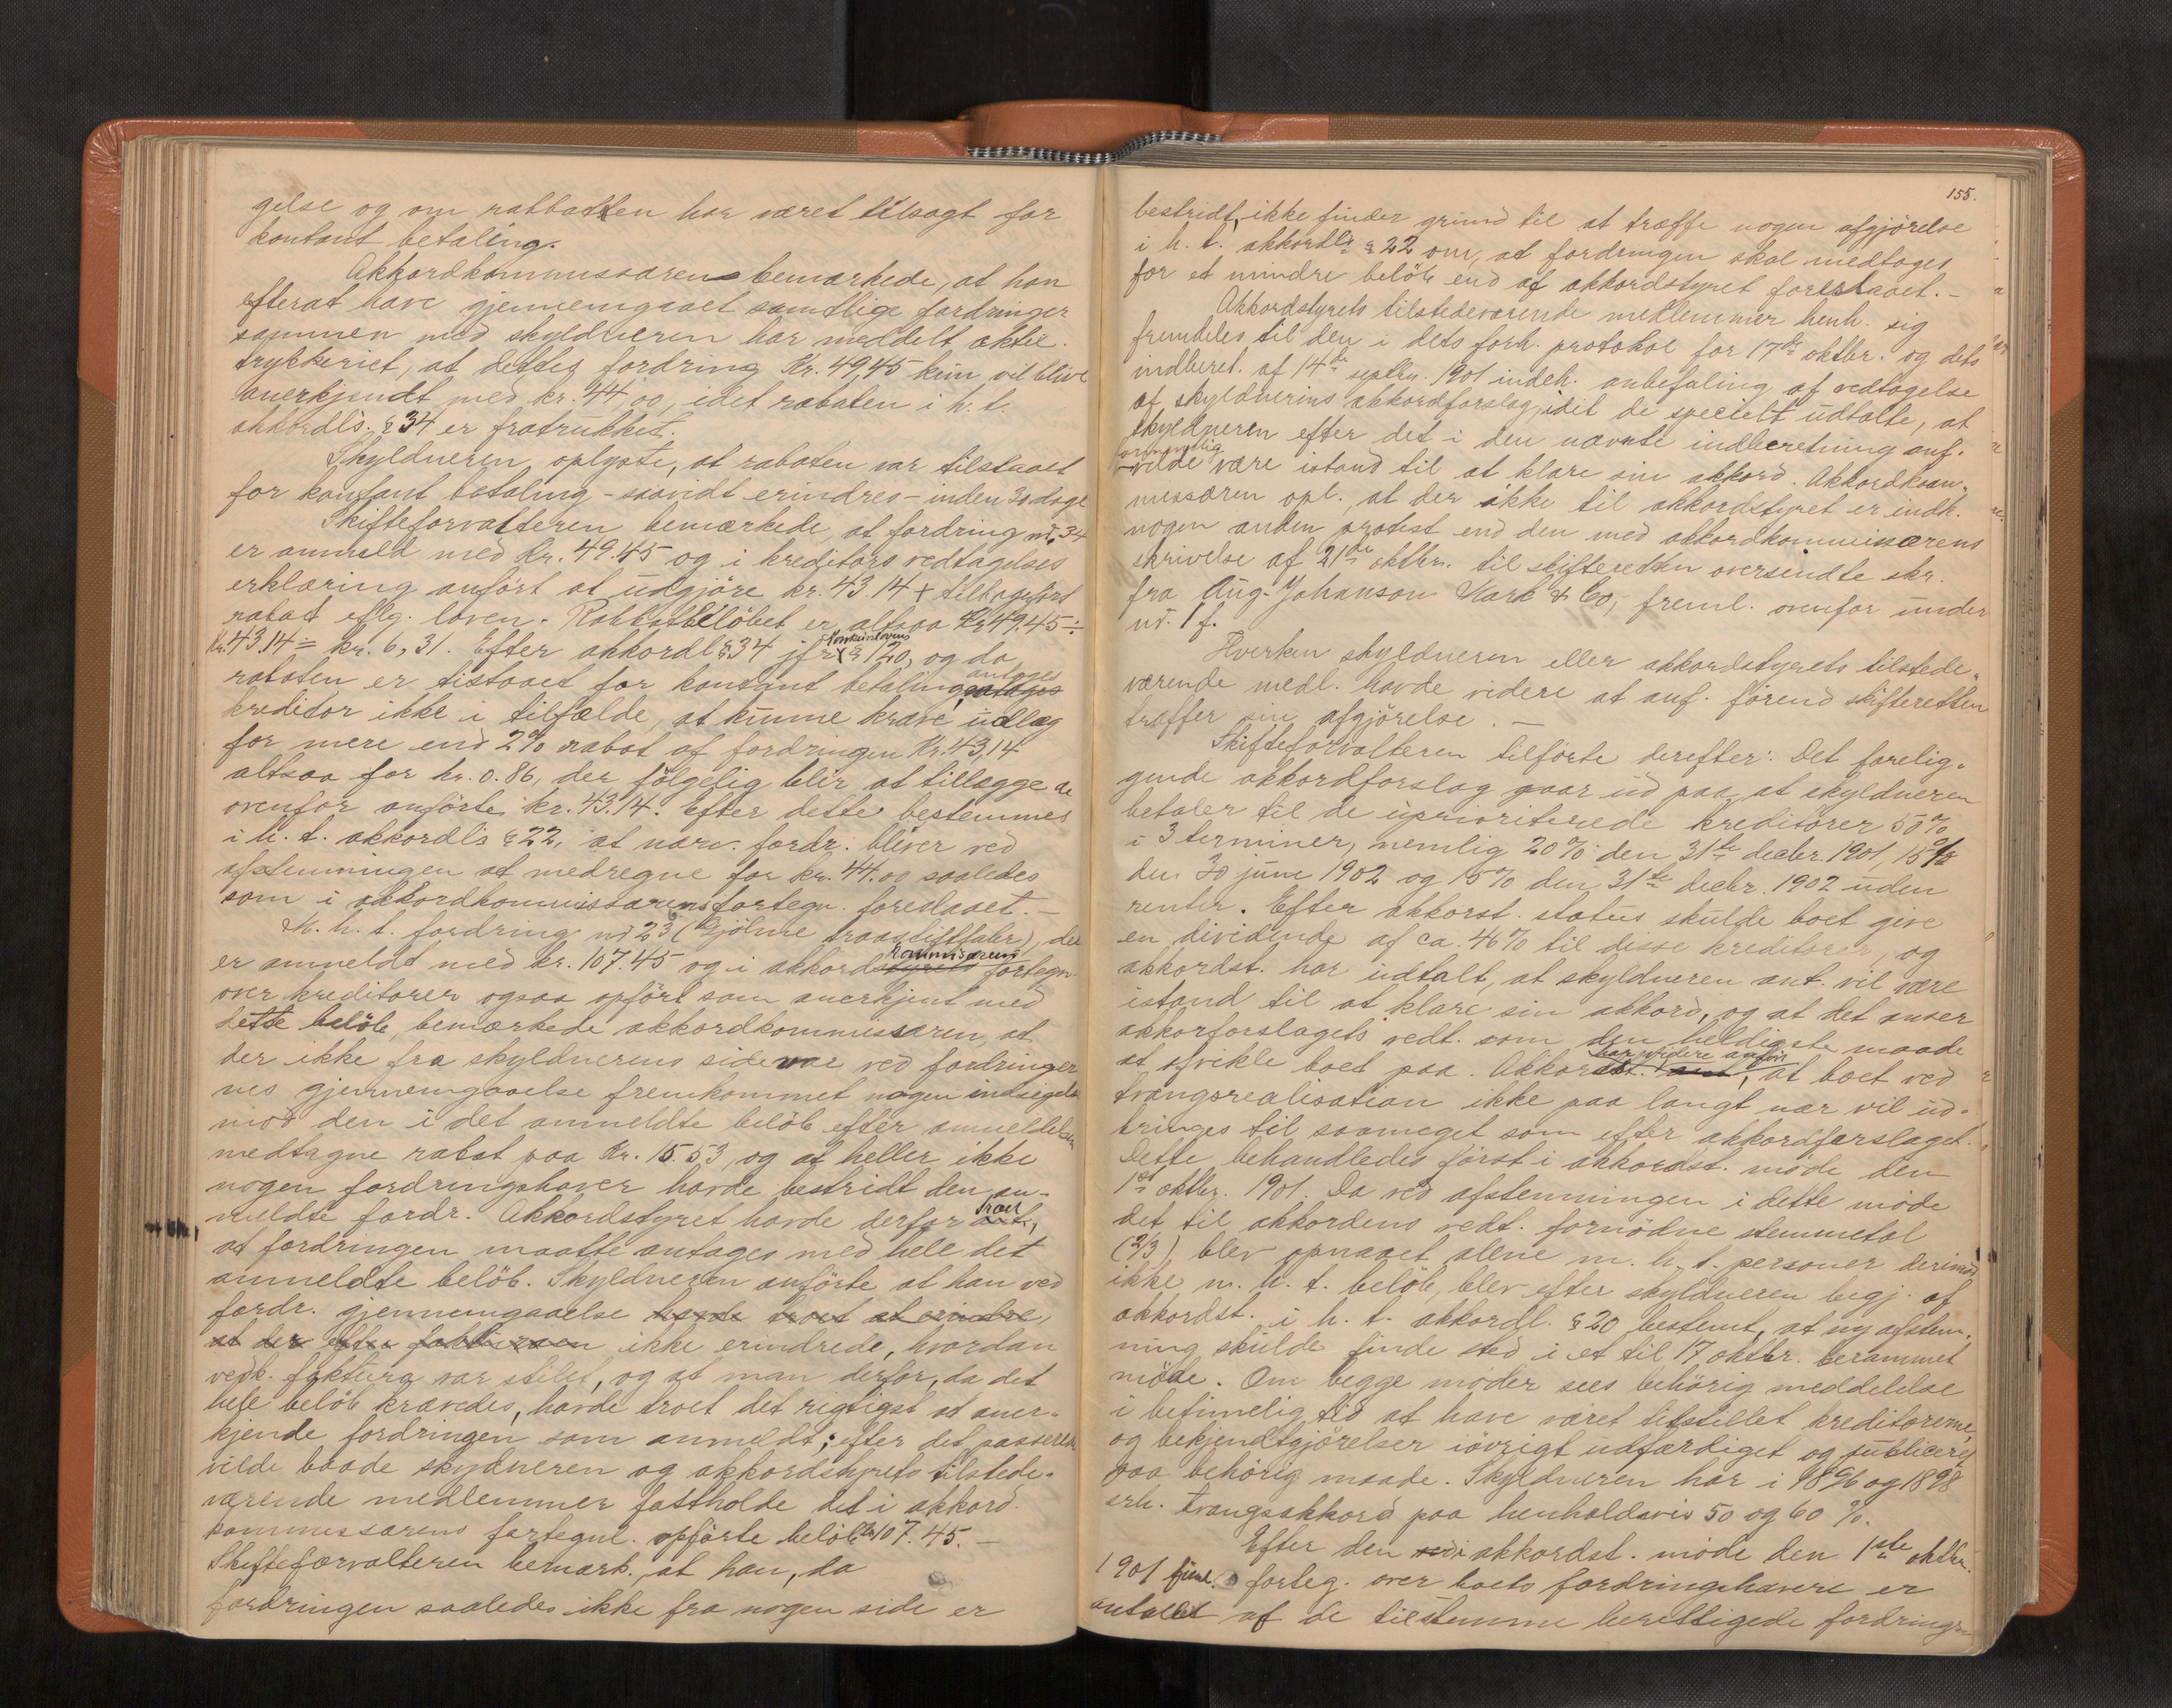 gelse og om rabbatten har været tilsagt for
kontant betaling.
Akkordkommissæren bemærkede, at han
efterat have gjennemgaaet samtlige fordringer
sammen med skyldneren har meddelt aktie-
trykkeriet, at dettes fordring Kr. 49,45 kun vil blive
anerkjendt med kr. 44,00, idet rabaten i h. t.
akkordls. § 34 er fratrukket.
Skyldneren oplyste, at rabaten var tilstaaet
for kontant betaling - saavidt erindres - inden 30 dage
Skifteforvalteren bemærkede, at fordring nr. 34
er anmeld med Kr. 49.45 og i kreditors vedtagelses
erklæring anført at udgjøre kr. 43.14 + tilbageført
rabat eflg. loven. Rabbatbeløbet er altsaa Kr 49.45 ÷
Kr. 43.14 = kr. 6,31. Efter akkordl § 34 jfr Konkurslovens § 120, og da
rabaten er tistaaet for kontant betaling, antages
kreditor ikke i tilfælde, at kunne kræve udlæg
for mere end 2% rabat af fordringen Kr. 43,14
altsaa for kr. 0.86, der følgelig blir at tillægge de
ovenfor anførte kr. 43.14. Efter dette bestemmes
i h. t. akkordls § 22, at nærv. fordr. bliver ved
afstemningen at medregne for kr. 44.00 saaledes
som i akkordkommissærens fortegn. foreslaaet. —
M. h. t. fordring nr 23 (Kjølner traastiftfabr), der
er anmeldt med kr. 107.45 og i akkordkommisærens fortegn.
over kreditorer ogsaa opført som anerkjent med
dette beløb, bemærkede akkordkommissæren, at
der ikke fra skyldnerens side var ved fordringer
nes gjennemgaaelse fremkommet nogen indsigelse
mod den i det anmeldte beløb efter anmeldelsen
medtagne rabat paa Kr. 15.53, og at heller ikke
nogen fordringshaver havde bestridt den an-
meldte fordr. Akkordstyret havde derfor troet,
at fordringen maatte antages med hele det
anmeldte beløb. Skyldneren anførte at han ved
fordr. gjennemgaaelse havde troet at erindre,
at der efter fakturaen ikke erindrede, hvordan
vedk. faktura var stilet, og at man derfor, da det
hele beløb krævedes, havde troet det rigtigst at aner-
kjende fordringen som anmeldt; efter det passerede
vilde baade skydneren og akkordstyrets tilstede-
værende medlemmer fastholde det i akkord
kommissærens fortegnl. opførte beløb kr 107.45. —
Skifteforvalteren bemærk., at han, da
fordringen saaledes ikke fra nogen side er
155.
bestridt, ikke finder grund til at træffe nogen afgjørelse
i h. t. akkordls § 22 om, at fordringen skal medtages
for et mindre beløb end af akkordstyret foreslaaet. —
Akkordstyrets tilstedeværende medlemmer henh. sig
fremdeles til den i dets forh. protokol for 17de oktbr. og dets
indberet. af 14de septbr. 1901 indeh. anbefaling af vedtagelse
af skyldnerens akkordforslag, idet de specielt udtalte, at
skyldneren efter det i den nævnte indberetning anf.
vilde være istand til at klare sin akkord. Akkordkom-
missæren opl., at der ikke til akkordstyret er indk.
nogen anden protest end den med akkordkommissærens
skrivelse af 21de oktbr. til skifteretten oversendte skr.
fra Aug. Johanson Wark & Co, freml. ovenfor under
nr. 1 f.
Hverken skyldneren eller akkordstyrets tilstede-
værende medl. havde videre at anf. førend skifteretten
træffer sin afgjørelse. —
Skifteforvalteren tilførte derefter: Det forelig-
gende akkordforslag gaar ud paa, at skyldneren
betaler til de uprioriterede kreditorer 50%
i 3 terminer, nemlig 20% den 31te decbr. 1901, 15%
den 30 juni 1902 og 15% den 31te decbr. 1902 uden
renter. Efter akkorst. status skulde boet give
en dividende af ca. 46% til disse kreditorer, og
akkordst. har udtalt, at skyldneren ant. vil være
istand til at klare sin akkord, og at det anser
akkorforslagets vedt. som den heldigste maade
at afvikle boet paa. Akkordst. har videre anført, at boet ved
tvangsrealisation ikke paa langt nær vil ud-
bringes til saameget som efter akkordforslaget.
Dette behandledes først i akkordst. møde den
1ste oktbr. 1901. Da ved afstemningen i dette møde
det til akkordens vedt. fornødne stemmetal
(2/3), blev opnaaet alene m. h. t. personer derimod
ikke m. h. t. beløb, blev efter skyldneren begj. af
akkordst. i h. t. akkordl. § 20 bestemt, at ny afstem-
ning skulde finde sted i et til 17 oktbr. berammet
møde. Om begge møder sees behørig meddelelse
i betimelig tid at have været tilstillet kreditorerne,
og bekjendtgjørelser iøvrigt udfærdiget og publiceret
paa behørig maade. Skyldneren har i 1896 og 1898
erh. tvangsakkord paa henholdsvis 50 og 60 %.
Efter den i akkordst. møde den 1ste oktbr.
1901 freml. forteg. over boets fordringshavere er
antallet af de tilstemme berettigede fordrings-